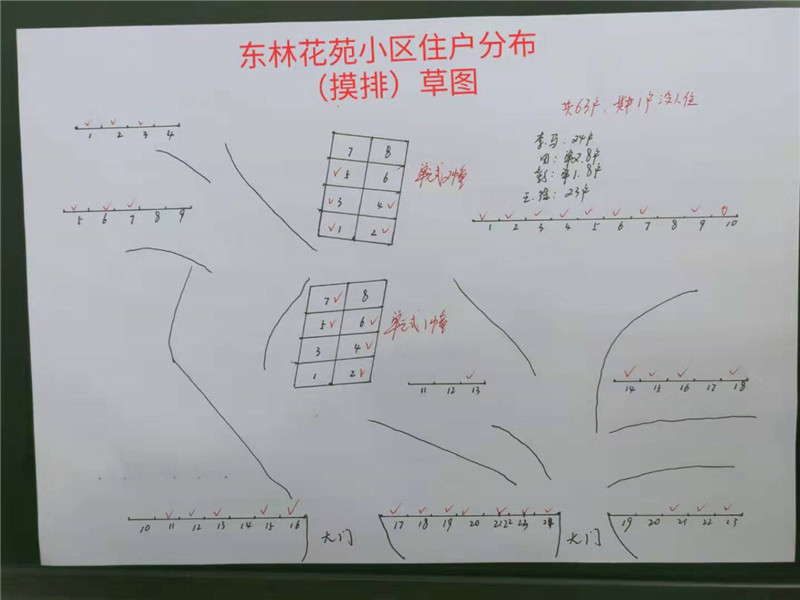 东林花苑小区住户分布
（摸排）草图
共63户，其中1户没人住
李马：24户
田：第2.8户
彭：第1.8户
王维：23户
1 2 3 4
5 6 7 8 9
7 8
5 6
3 4
1 2
单元式2幢
1 2 3 4 5 6 7 8 9 10
7 8
5 6
3 4
1 2
单元式1幢
11 12 13
14 15 16 17 18
10 11 12 13 14 15 16
大门
17 18 19 20 21 22 23 24
大门
19 20 21 22 23